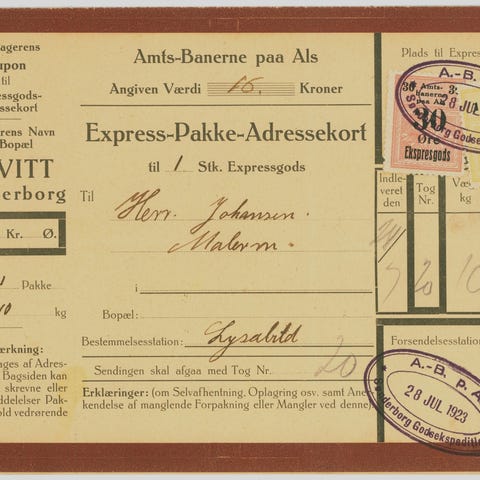 agerens
upon
til
essgods-
ssekort
erens Navn
Bopæl
VITT
derborg
Kr. Ø.
Pakke
10 kg
erkning:
ages af Adres-
Bagsiden kan
skrevne eller
ddelelser Pak-
old vedrørende
Amts-Banerne paa Als
Angiven Værdi 16. Kroner
Express-Pakke-Adressekort
til 1 Stk. Expressgods
Til
Herr. Johansen.
Malerm.
i
Bopæl:
Bestemmelsesstation: Lysabild
Sendingen skal afgaa med Tog Nr. 20
Erklæringer: (om Selvafhentning, Oplagring osv. samt Aner-
kendelse af manglende Forpakning eller Mangler ved denne).
Plads til Expres
30 Amts-
banerne
paa Als
30
Øre
Ekspresgods
A.-B.
28 JUL
Sønderborg Godsek
Indle-
veret
den
Tog
Nr.
Væ
kg
24
7
20
10
Forsendelsesstatio
A.-B. P. A
28 JUL 1923
Sønderborg Godsekspeditio